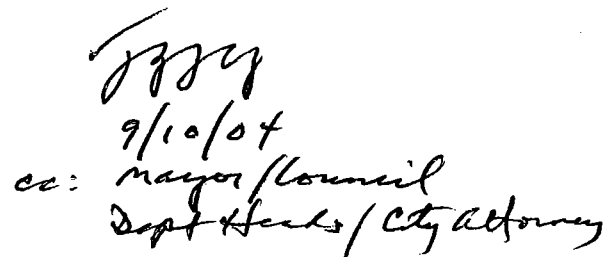 9/10/04
cc: Mayor/Council
Dept Heads/City Attorney